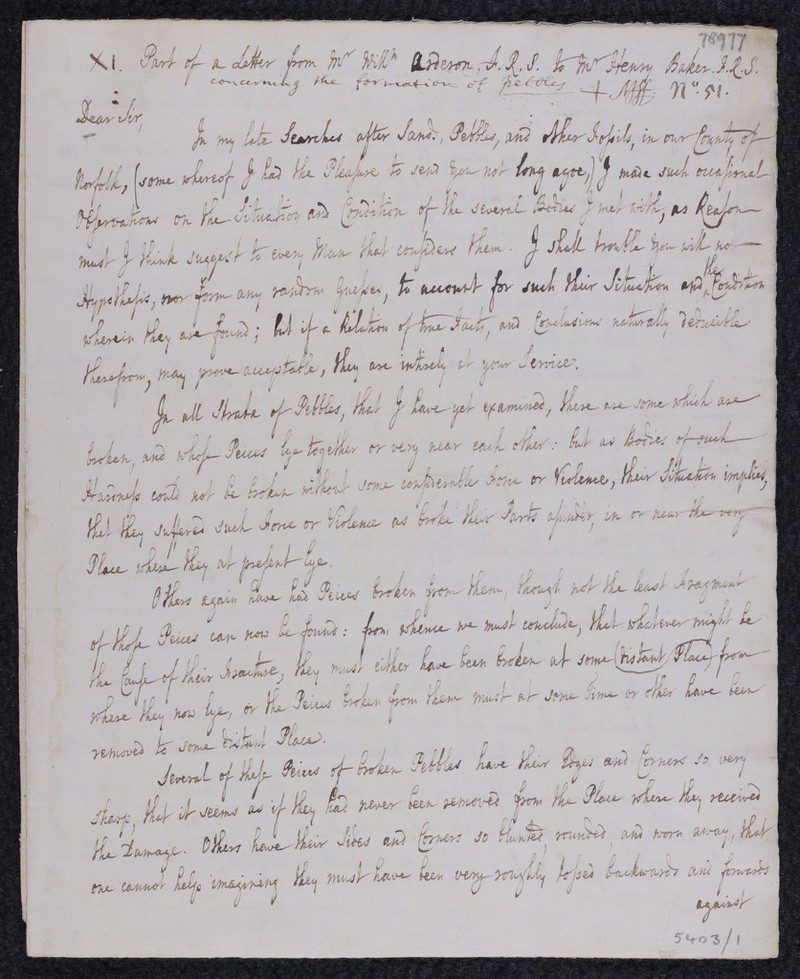 78977
XI. Part of a Letter from Mr Willm Arderon, F.R.S. to Mr Henry Baker. F.R.S.
concerning the formation of Pebbles + No. 51.
Dear Sir,
In my late Searches after Sands, Pebbles, and other Fossils, in our County of
Norfolk, (some whereof I had the Pleasure to send you not long agoe,) I made such occasional
Observations on the Situation and Condition of the several Bodies I met with, as Reason
must I think suggest to every Man that considers them. I shall trouble you with no
Hypothesis, nor form any random Guesses, to account for such their Situation and the Condition
wherein they are found; but if a Relation of true Facts, and Conclusions naturally deducible
therefrom, may prove acceptable, they are intirely at your Service.
In all Strata of Pebbles, that I have yet examined, there are some which are
broken, and whose Peices lye together or very near each other: but as Bodies of such
Hardness could not be broken without some considerable Force or Violence, their Situation implies,
that they suffered such Force or Violence as broke their Parts asunder, in or near the very
Place where they at present lye.
Others again have had Peices broken from them, though not the least Fragment
of those Peices can now be found: from whence we must conclude, that whatever might be
the Cause of their Fracture, they must either have been broken at some (distant Place) from
where they now lye, or the Peices broken from them must at some Time or other have been
removed to some distant Place.
Several of these Peices of broken Pebbles have their Edges and Corners so very
sharp, that it seems as if they had never been removed from the Place where they received
the Damage. Others have their Sides and Corners so blunted, rounded, and worn away, that
one cannot help imagining they must have been very roughly tossed backwards and forwards
against
5403/1